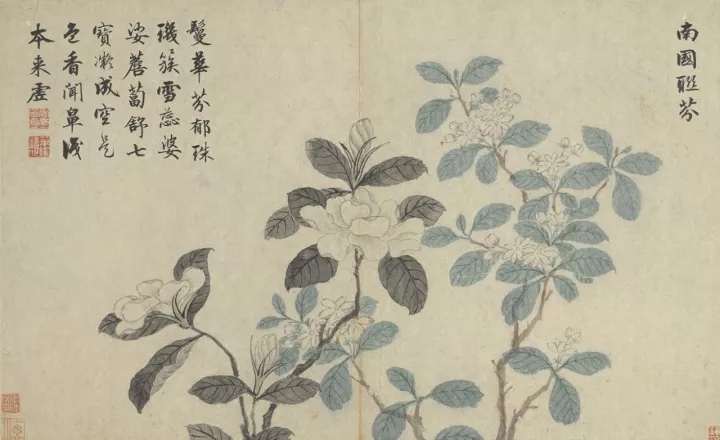 南國聯芬
鬘華芬郁珠
璣簇雪蕊婆
娑薝蔔舒七
寶凝成空是
色香聞鼻識
本来虛